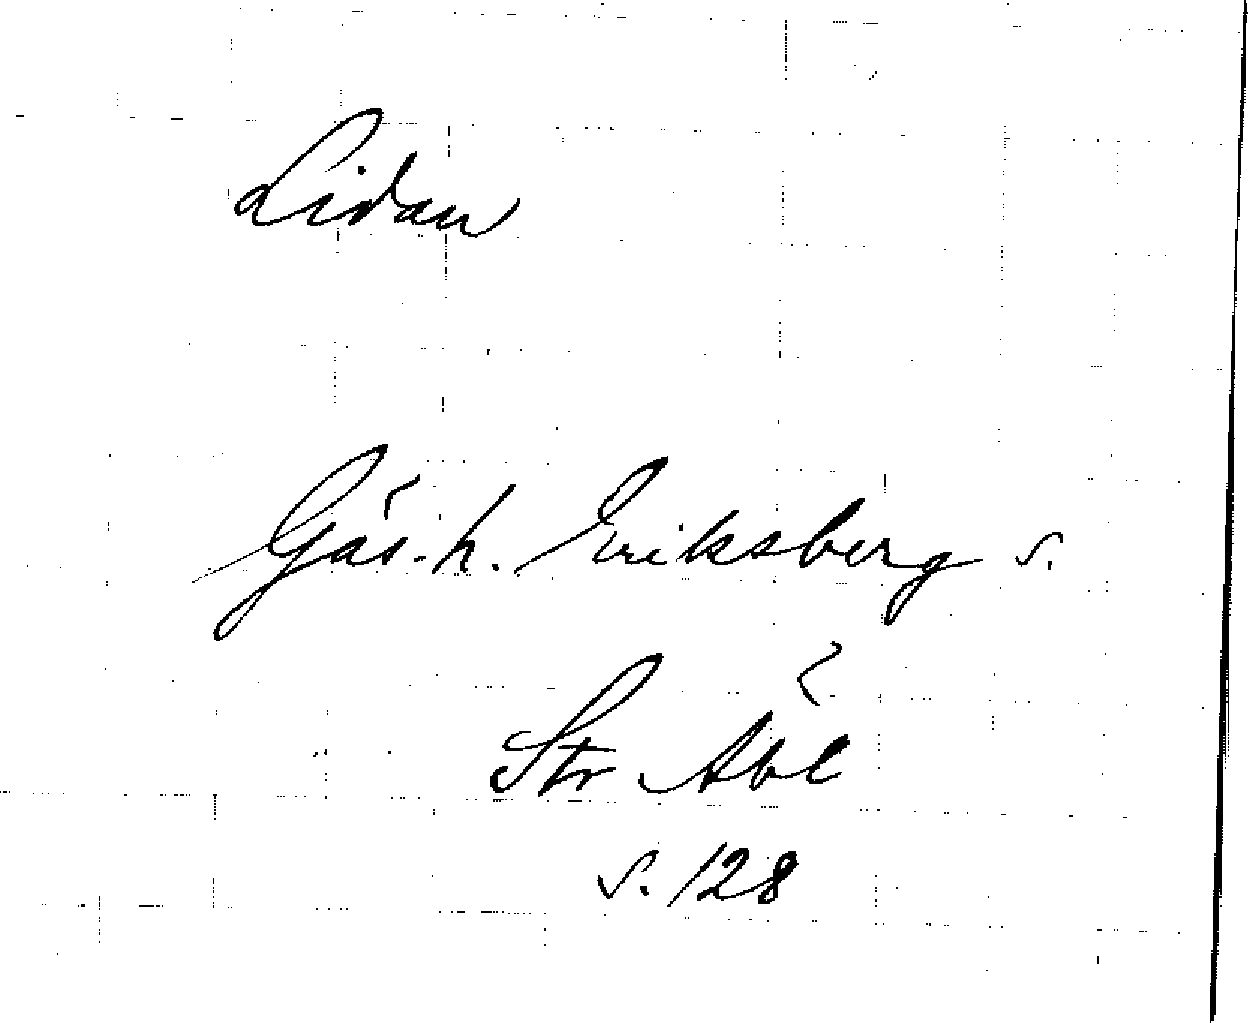 Lidan
Gäs. h. Eriksberg s.
Str Abl
s. 128